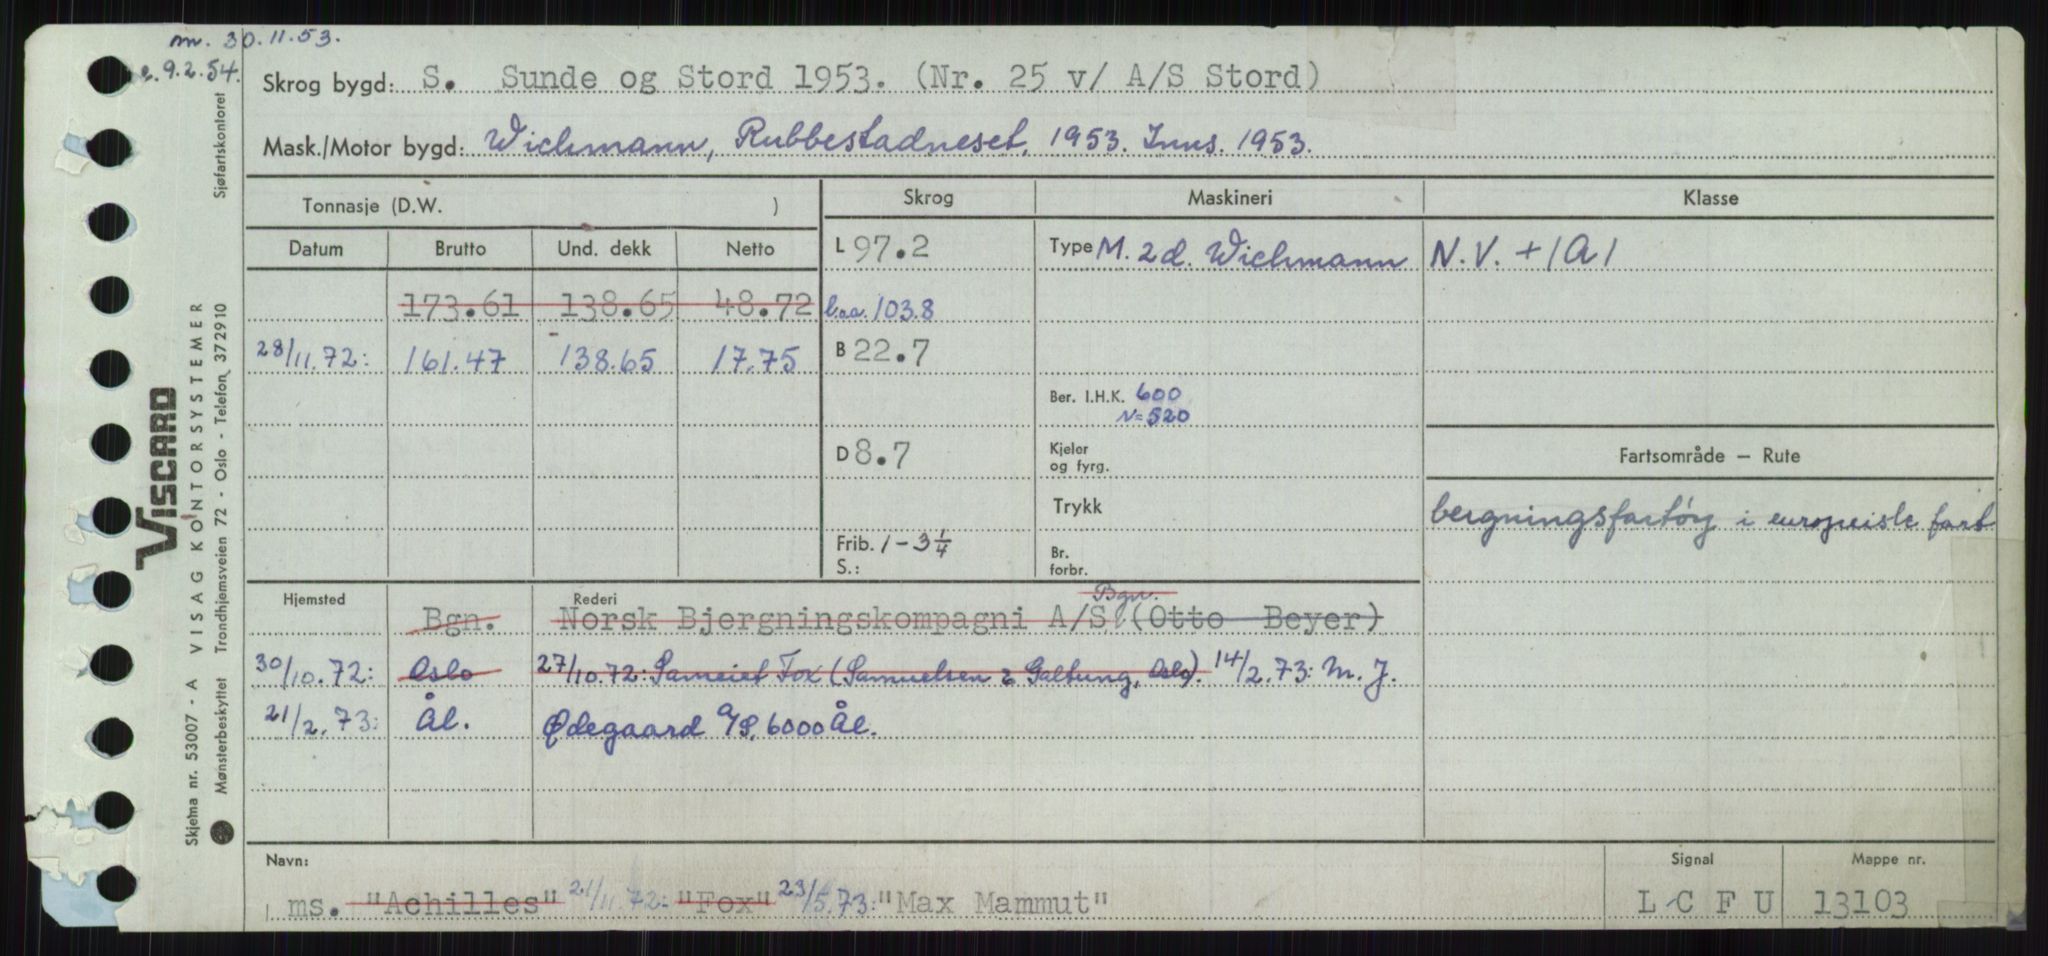 m. 30.11.53.
e. 9.2.54.
Skrog bygd: S. Sunde og Stord 1953. (Nr. 25 v/ A/S Stord)
Mask./Motor bygd: Wichmann, Rubbestadneset, 1953. Inns. 1953.
Tonnasje (D.W. )
Skrog
Maskineri
Klasse
Datum Brutto Und. dekk Netto
L 97.2
Type M. 2 d. Wichmann
N.V. +1A1
173.61 138.65 48.72
l.o.a. 103.8
28/11.72: 161.47 138.65 17.75
B 22.7
Ber. I.H.K. 600
N=520
D 8.7
Kjeler
og fyrg.
Fartsområde — Rute
Trykk
bergningsfartøy i europeisk fart
Frib. 1-3 1/4
S.:
Br.
forbr.
Hjemsted Rederi
Bgn. Norsk Bjergningskompagni A/S, Bgn. (Otto Beyer)
30/10.72: Oslo 27/10.72: Sameiet Fox (Samuelsen & Galtung, Oslo). 14/2.73: M. J.
21/2.73: Ål. Ødegaard A/S, 6000 Ål.
Navn:
ms. "Achilles" 21/11.72: "Fox" 23/5.73: "Max Mammut"
Signal
L C F U
Mappe nr.
13103
Skjema nr. 53007 - A VISAG KONTORSYSTEMER
Mønsterbeskyttet Trondhjemsveien 72 - Oslo - Telefon 372910 Sjøfartskontoret
VISCARD